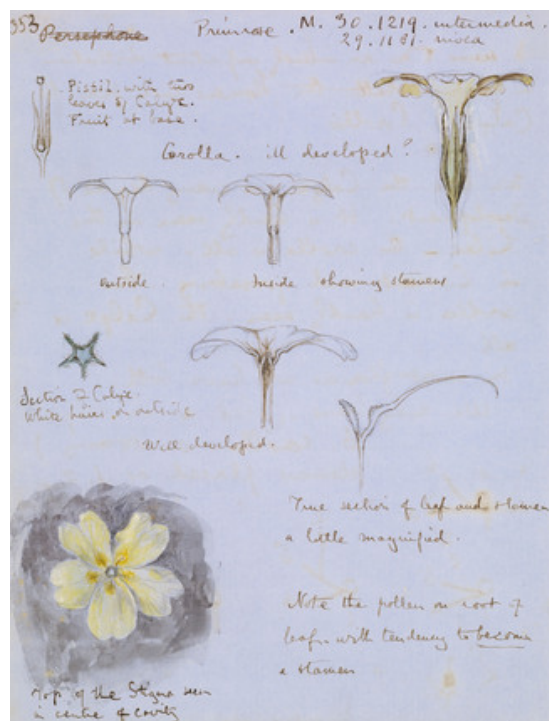 353 Persephone Primrose. M. 30.1219. intermedia.
29.1181. nivea
Pistil. with two
leaves of Calyx.
Fruit at base.
Corolla. ill developed?
outside. Inside showing stamens
Section of Calyx.
White hairs on outside
Well developed.
True section of leaf and stamen
a little magnified.
Note the pollen on root of
leaf. with tendency to become
a stamen
Top of the Stigma seen
in centre of cavity